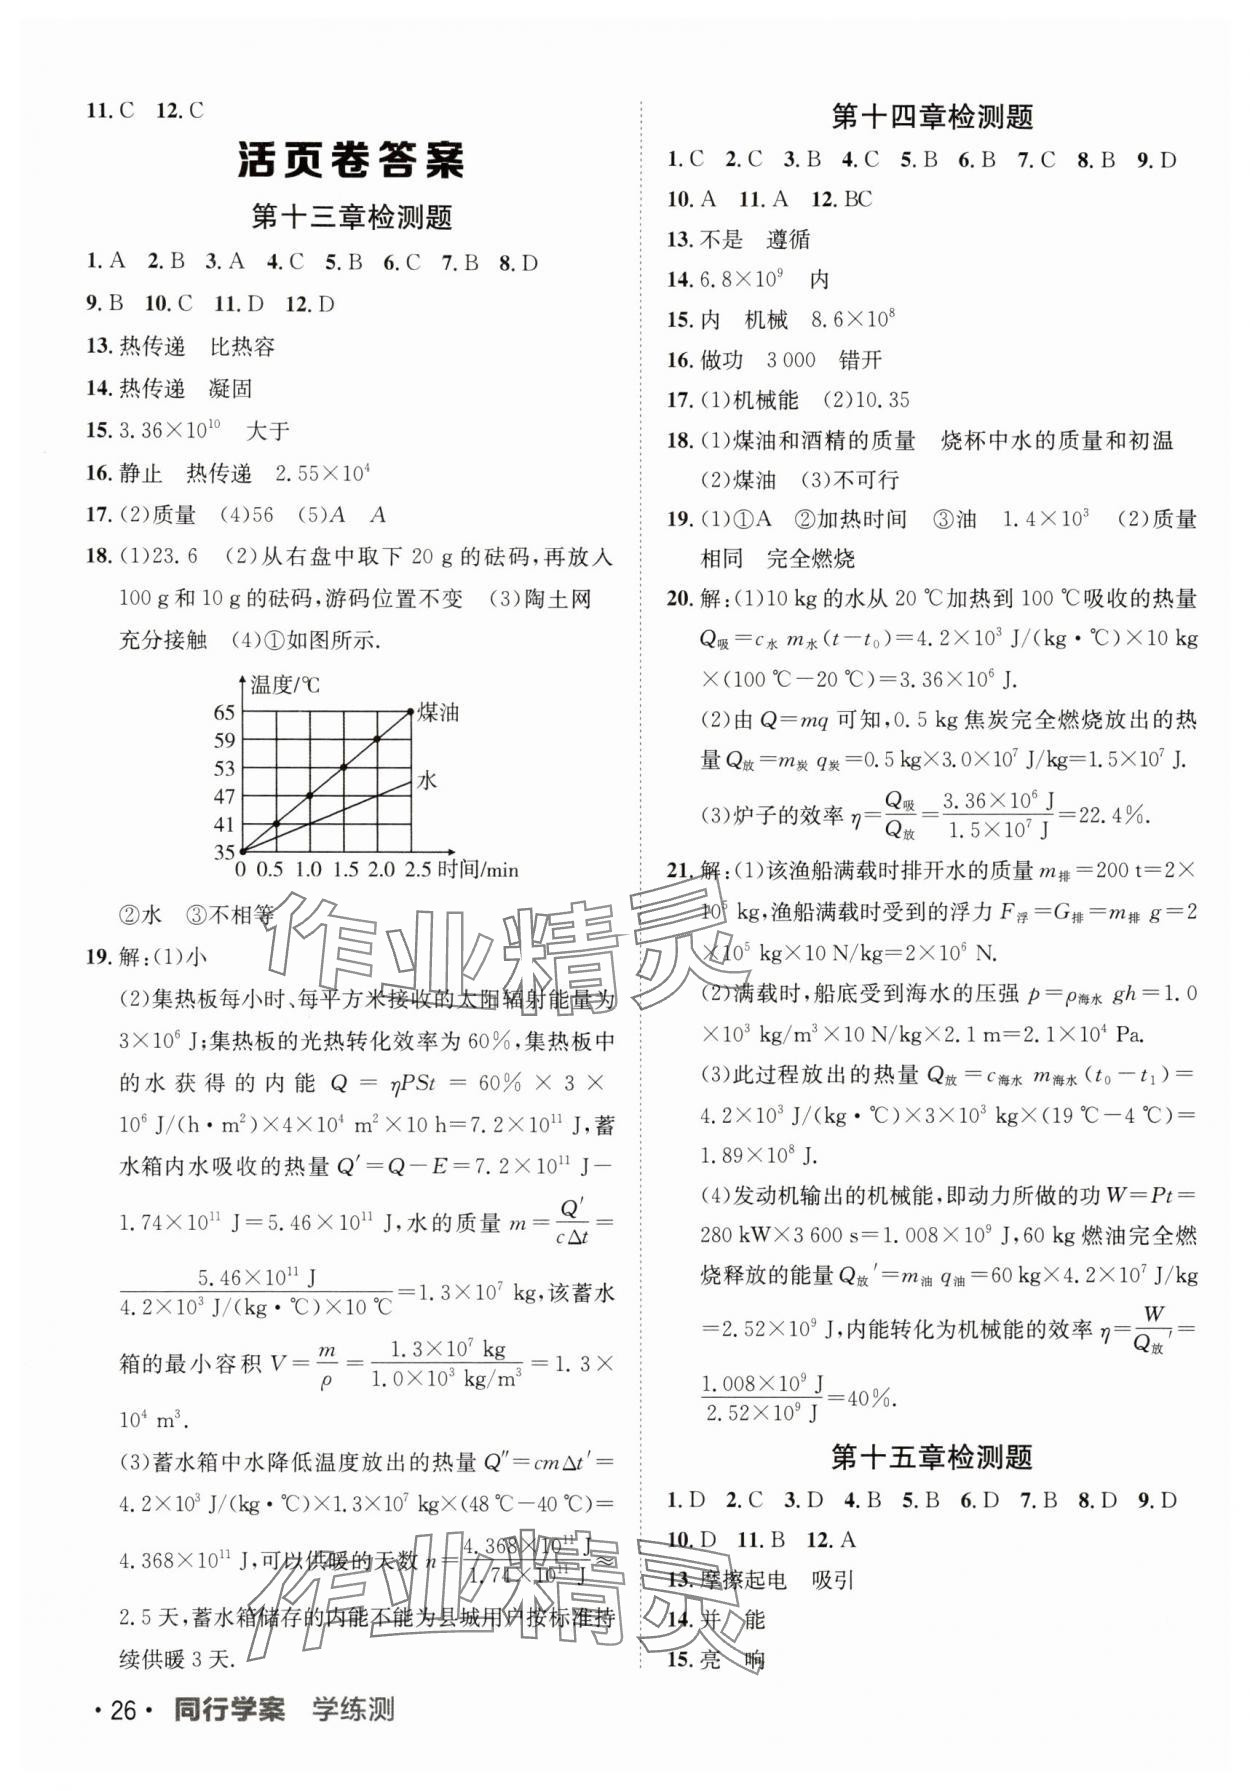 11. C  12. C
活页卷答案
第十三章检测题
1. A  2. B  3. A  4. C  5. B  6. C  7. B  8. D
9. B  10. C  11. D  12. D
13. 热传递  比热容
14. 热传递  凝固
15. 3.36×10¹⁰  大于
16. 静止  热传递  2.55×10⁴
17. (2)质量  (4)56  (5)A  A
18. (1)23.6  (2)从右盘中取下 20 g 的砝码,再放入
100 g 和 10 g 的砝码,游码位置不变  (3)陶土网
充分接触  (4)①如图所示.
温度/℃
65
59
53
47
41
35
煤油
水
0  0.5  1.0  1.5  2.0  2.5  时间/min
②水  ③不相等
19. 解:(1)小
(2)集热板每小时、每平方米接收的太阳辐射能量为
3×10⁶ J;集热板的光热转化效率为 60%,集热板中
的水获得的内能 Q = ηPSt = 60% × 3 ×
10⁶ J/(h·m²)×4×10⁴ m²×10 h=7.2×10¹¹ J,蓄
水箱内水吸收的热量 Q′=Q−E=7.2×10¹¹ J−
1.74×10¹¹ J=5.46×10¹¹ J,水的质量 m=Q′/cΔt=
5.46×10¹¹ J/4.2×10³ J/(kg·℃)×10 ℃=1.3×10⁷ kg,该蓄水
箱的最小容积 V=m/ρ=1.3×10⁷ kg/1.0×10³ kg/m³=1.3×
10⁴ m³.
(3)蓄水箱中水降低温度放出的热量 Q″=cmΔt′=
4.2×10³ J/(kg·℃)×1.3×10⁷ kg×(48 ℃−40 ℃)=
4.368×10¹¹ J,可以供暖的天数 n=4.368×10¹¹ J/1.74×10¹¹ J≈
2.5 天,蓄水箱储存的内能不能为县城用户按标准持
续供暖 3 天.
第十四章检测题
1. C  2. C  3. B  4. C  5. B  6. B  7. C  8. B  9. D
10. A  11. A  12. BC
13. 不是  遵循
14. 6.8×10⁹  内
15. 内  机械  8.6×10⁸
16. 做功  3 000  错开
17. (1)机械能  (2)10.35
18. (1)煤油和酒精的质量  烧杯中水的质量和初温
(2)煤油  (3)不可行
19. (1)①A  ②加热时间  ③油  1.4×10³  (2)质量
相同  完全燃烧
20. 解:(1)10 kg 的水从 20 ℃加热到 100 ℃吸收的热量
Q吸=c水 m水(t−t₀)=4.2×10³ J/(kg·℃)×10 kg
×(100 ℃−20 ℃)=3.36×10⁶ J.
(2)由 Q=mq 可知,0.5 kg 焦炭完全燃烧放出的热
量 Q放=m炭 q炭=0.5 kg×3.0×10⁷ J/kg=1.5×10⁷ J.
(3)炉子的效率 η=Q吸/Q放=3.36×10⁶ J/1.5×10⁷ J=22.4%.
21. 解:(1)该渔船满载时排开水的质量 m排=200 t=2×
10⁵ kg,渔船满载时受到的浮力 F浮=G排=m排 g=2
×10⁵ kg×10 N/kg=2×10⁶ N.
(2)满载时,船底受到海水的压强 p=ρ海水 gh=1.0
×10³ kg/m³×10 N/kg×2.1 m=2.1×10⁴ Pa.
(3)此过程放出的热量 Q放=c海水 m海水(t₀−t₁)=
4.2×10³ J/(kg·℃)×3×10³ kg×(19 ℃−4 ℃)=
1.89×10⁸ J.
(4)发动机输出的机械能,即动力所做的功 W=Pt=
280 kW×3 600 s=1.008×10⁹ J,60 kg 燃油完全燃
烧释放的能量 Q放′=m油 q油=60 kg×4.2×10⁷ J/kg
=2.52×10⁹ J,内能转化为机械能的效率 η=W/Q放′=
1.008×10⁹ J/2.52×10⁹ J=40%.
第十五章检测题
1. D  2. C  3. D  4. B  5. B  6. D  7. B  8. D  9. D
10. D  11. B  12. A
13. 摩擦起电  吸引
14. 并  能
15. 亮  响
·26·  同行学案  学练测
作业精灵
作业精灵